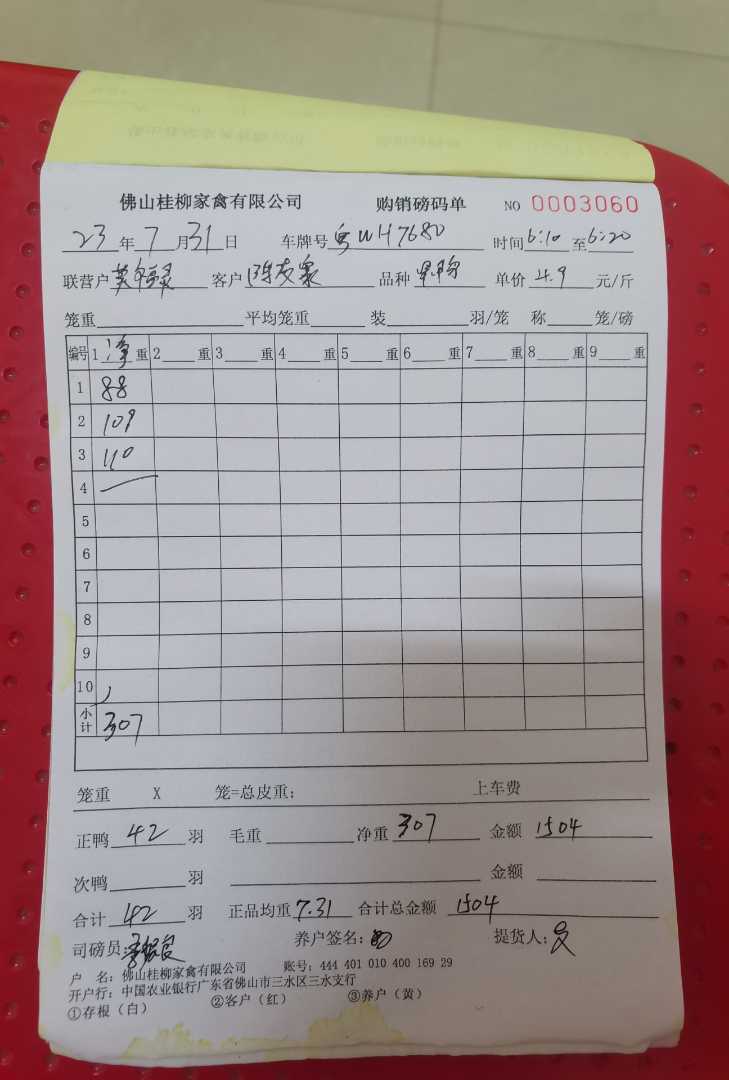 佛山桂柳家禽有限公司 购销磅码单 NO 0003060
23年7月31日 车牌号粤WH7680 时间6:10至6:20
联营户 客户陈友家 品种 单价4.9元/斤
笼重 平均笼重 装 羽/笼 称 笼/磅
编号 1净重 2 重 3 重 4 重 5 重 6 重 7 重 8 重 9 重
1 88
2 109
3 110
4
5
6
7
8
9
10
小计 307
笼重 X 笼=总皮重: 上车费
正鸭42羽 毛重 净重307 金额1504
次鸭 羽 金额
合计42羽 正品均重7.31 合计总金额1504
司磅员: 养户签名: 提货人:
户 名: 佛山桂柳家禽有限公司 账号: 444 401 010 400 169 29
开户行: 中国农业银行广东省佛山市三水区三水支行
①存根(白) ②客户(红) ③养户(黄)